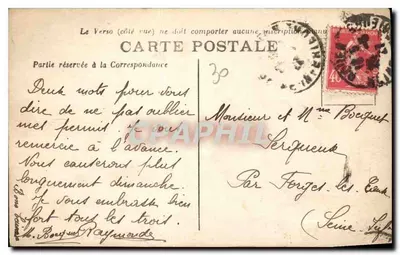 Le Verso (côté vue) ne doit comporter aucune inscription
CARTE POSTALE
Partie réservée à la Correspondance
30
Deux mots pour vous
dire de ne pas oublier
met permit. Je vous
remercie à l'avance.
Nous causerons plus
longuement dimanche.
Je vous embrasse bien
fort tous les trois.
Raymonde
Monsieur et Mme Bocquet
Serqueux
Par Forges les Eaux
(Seine
DELCAMPE